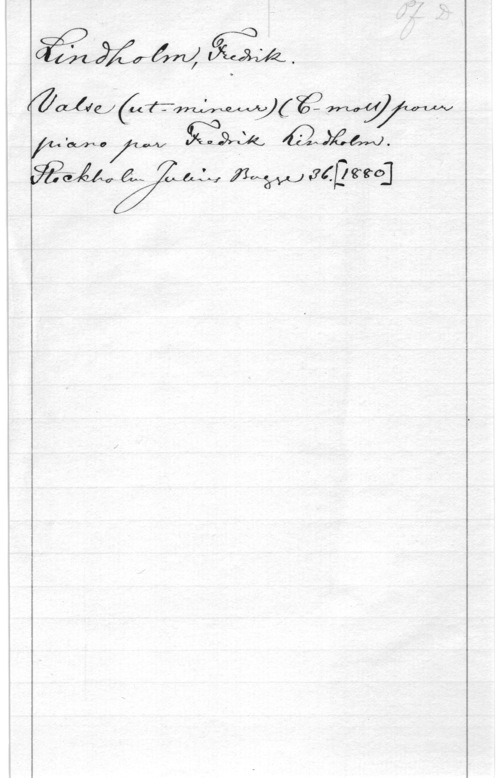 Pf D
Lindholm, Fredrik.
Valse (ut-mineur) (C-moll) pour
piano par Fredrik Lindholm.
Stockholm Julius Bagge 36. [1880]